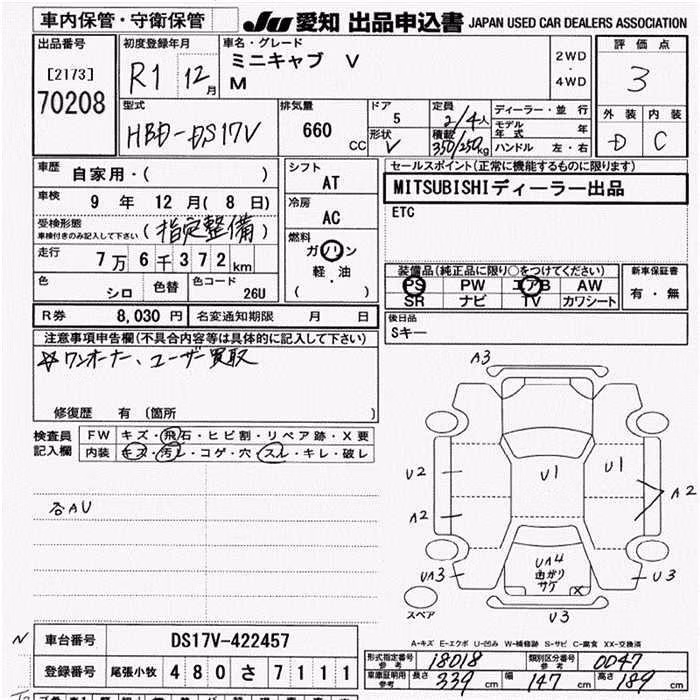 車内保管・守衛保管
JU 愛知 出品申込書 JAPAN USED CAR DEALERS ASSOCIATION
出品番号
[2173]
70208
初度登録年月
R1 12月
車名・グレード
ミニキャブ V
M
2WD
・
4WD
評価点
3
外装 内装
D C
型式
HBD-DS17V
排気量
660 CC
ドア
5
形状
V
定員
2/4人
積載
350/250kg
ディーラー・並行
モデル年式 年
ハンドル 左・右
車歴
自家用・( )
車検
9 年 12 月 ( 8 日)
受検形態
車検付きのみ記入して下さい (指定整備)
走行
7万6千372km
色
シロ
色替
色コード
26U
シフト
AT
冷房
AC
燃料
ガソリン
軽・油
( )
セールスポイント(正常に機能するものに限ります)
MITSUBISHIディーラー出品
ETC
装備品(純正品に限り○をつけてください)
PS PW エアB AW
SR ナビ TV カワシート
新車保証書
有・無
R券 8,030 円 名変通知期限 月 日
後日品
Sキー
注意事項申告欄(不具合内容等は具体的に記入して下さい)
☆ワンオーナー、ユーザー買取
修復歴 有 (箇所 )
検査員
記入欄
FW キズ・飛石・ヒビ割・リペア跡・X要
内装 キズ・汚レ・コゲ・穴・スレ・キレ・破レ
社AV
A3
U2
U1
U1
A2
A2
UA3
UA4
曲がり
サケ
X
U3
U3
スペア
A-キズ E-エクボ U-凹み W-補修跡 S-サビ C-腐食 XX-交換済
N
車台番号 DS17V-422457
登録番号 尾張小牧 480さ7111
形式指定番号
参考 18018
類別区分番号
参考 0047
車庫証明用
参考 長さ 339 cm 幅 147 cm 高さ 189 cm